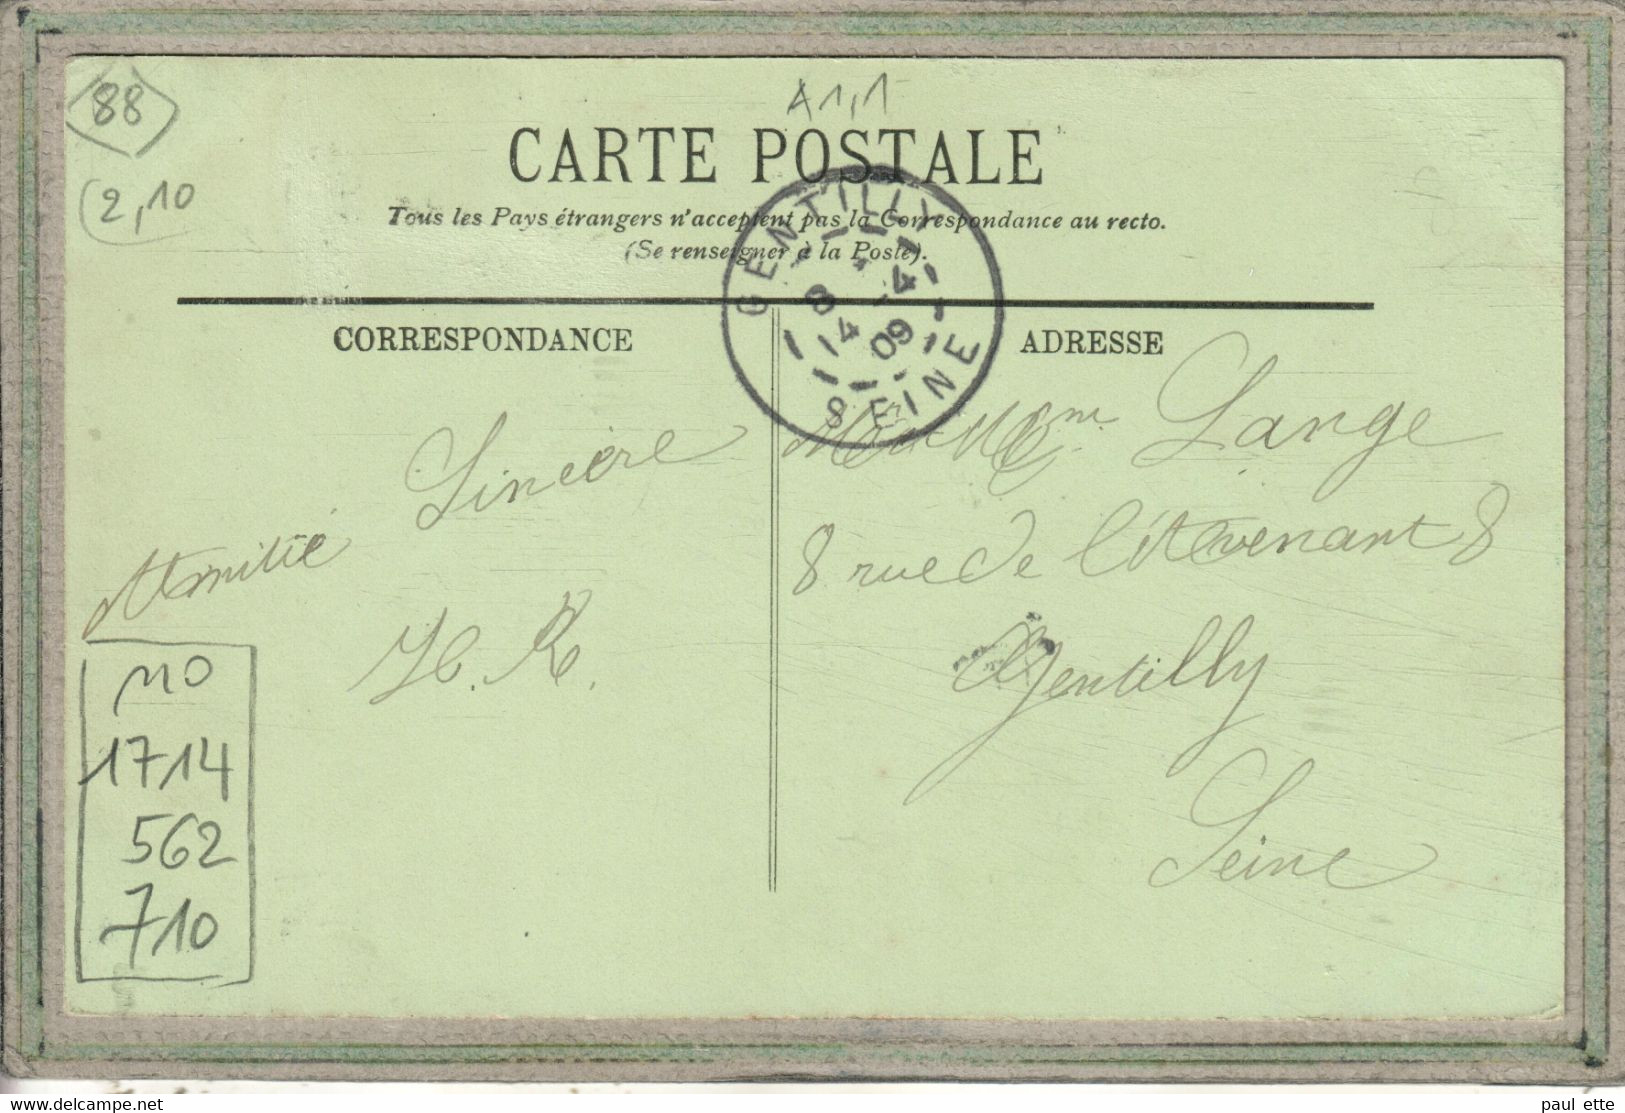 88
A1,1
CARTE POSTALE
2,10
Tous les Pays étrangers n'acceptent pas la Correspondance au recto.
(Se renseigner à la Poste).
GENTILLY
8 4
14 09
SEINE
CORRESPONDANCE
ADRESSE
Sincère
Amitié
H. R.
Mr et Mme Lange
8 rue de l'Avenant 8
Gentilly
Seine
110
1714
562
710
www.delcampe.net
paul ette